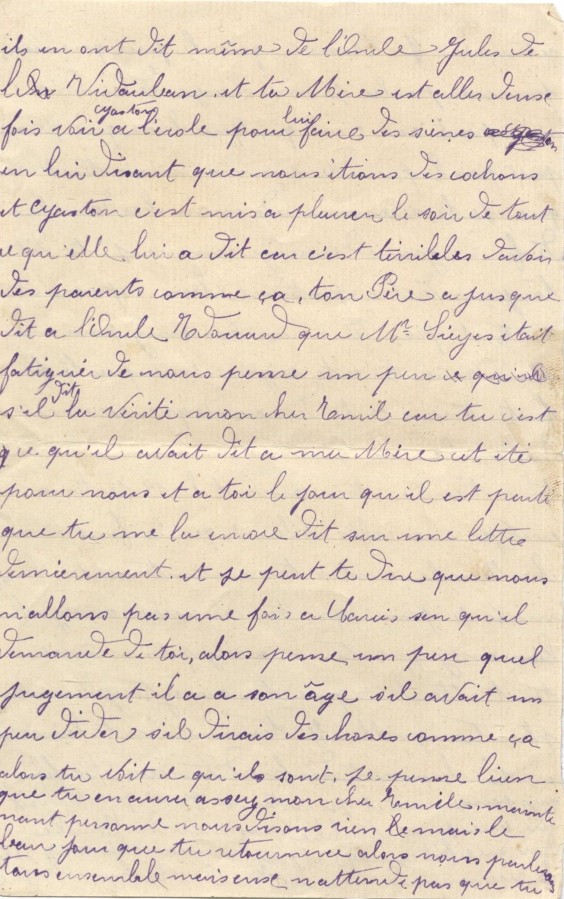 ils en ont dit même de l'Oncle Jules de
Vidauban. et ta Mère est alles deuse
fois voir Gaston a l'école pour lui faire des sienes
en lui disant que nous itions des cochons
et Gaston c'est mis a pleurer le soir de tout
ce qu'elle lui a dit car c'est terribles davoir
des parents comme ça, ton Père a jusque
dit a l'Oncle Edouard que Mr Sieyes était
fatiguér de nous pense un peu
s'il dit la vérité mon cher Emil car tu c'est
que qu'il avait dit a ma Mère cet été
pour nous et a toi le jour qu'il est parti
que tu me la encore dit sur une lettre
dernièrement. et je peut te dire que nous
n'allons pas une fois a sen qu'il
demande de toi, alors pense un peu quel
jugement il a a son âge s'il avait un
peu didér s'il dirais des choses comme ça
alors tu voit ce qu'ils sont. je pense bien
que tu en aurer assey mon cher Emile, mainte
nant personne nous disons rien mais le
beau jour que tu retournera alors nous parlerons
tous ensemble mais eux n'attende pas que tu